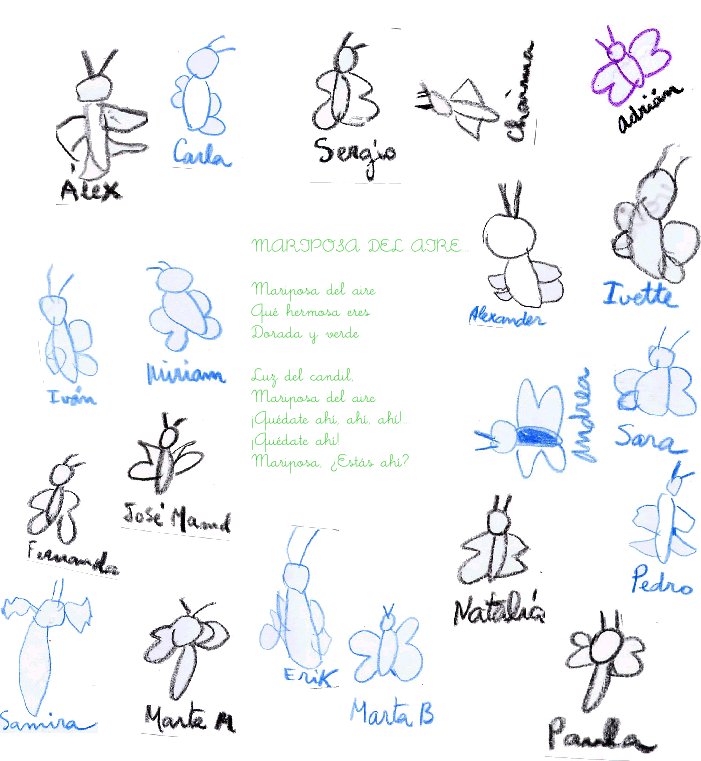 Álex
Carla
Sergio
Chaima
adrián
MARIPOSA DEL AIRE...
Mariposa del aire
Qué hermosa eres
Dorada y verde
Luz del candil,
Mariposa del aire
¡Quédate ahí, ahí, ahí!
¡Quédate ahí!
Mariposa, ¿Estás ahí?
Alexander
Ivette
Iván
Miriam
Andrea
Sara
José Manuel
Fernanda
Natalia
Pedro
Samira
Marta M
Erik
Marta B
Paula